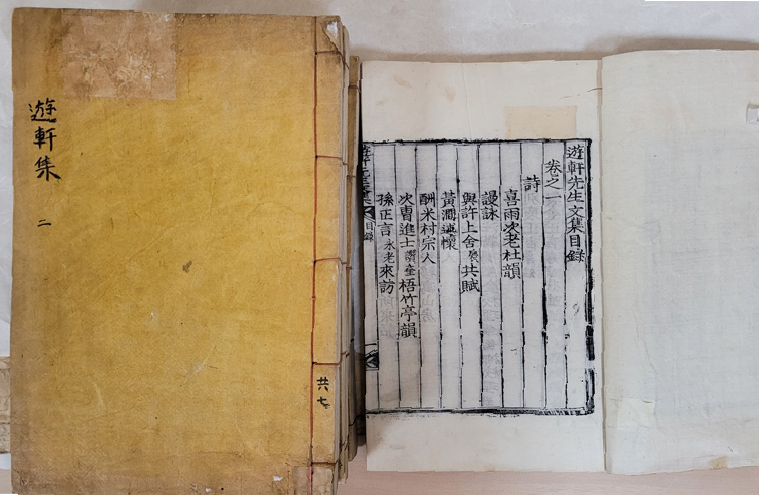 遊軒集
二
共七
遊軒先生文集目錄
卷之一
詩
喜雨次老杜韻
謾詠
與許上舍共賦
黃澗懷
酬米村宗人
次曺進士梧竹亭韻
孫正言永老來訪
目錄